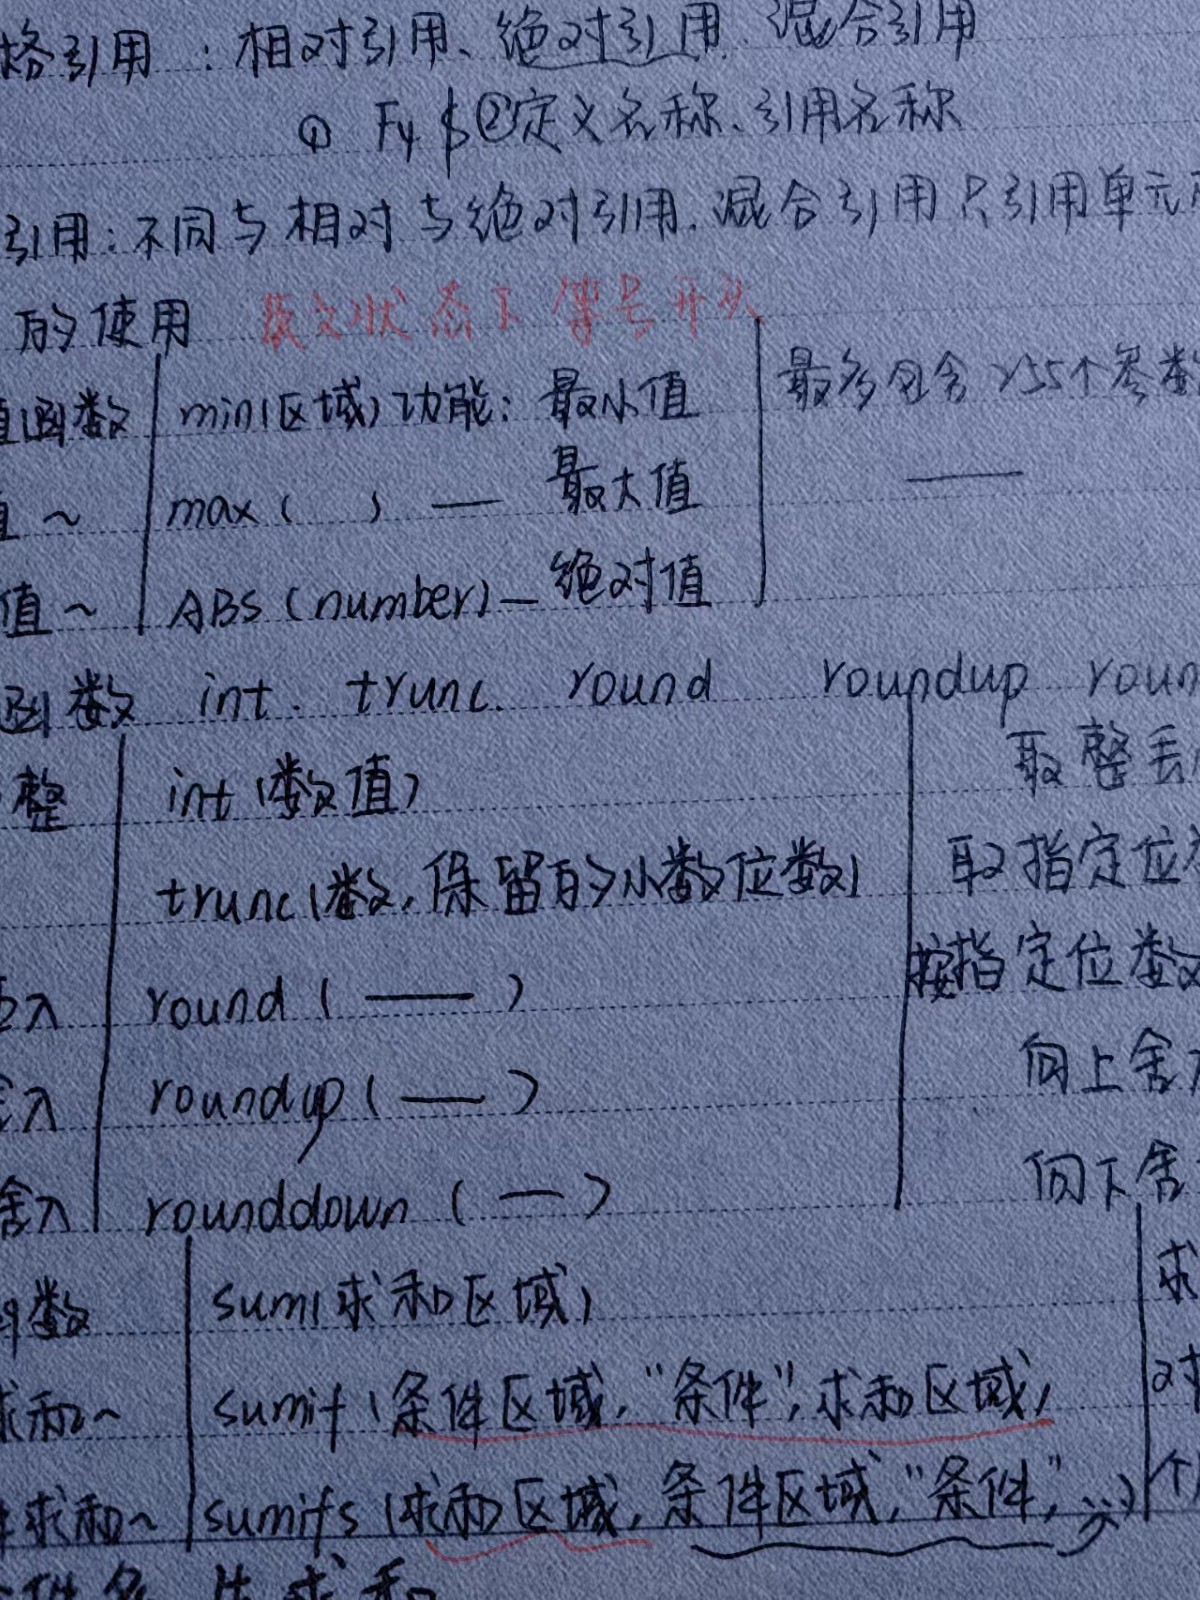 格引用：相对引用、绝对引用、混合引用
① F4 $ ②定义名称、引用名称
引用：不同与相对与绝对引用.混合引用只引用单元
的使用 英文状态下 等号开头
值函数 min(区域) 功能：最小值 最多包含255个参数
值~ max( ) — 最大值 —
值~ ABS(number) — 绝对值
函数 int. trunc. round roundup roun
整 int(数值) 取整丢
trunc(数,保留的小数位数) 取指定位
入 round(—) 按指定位数
舍入 roundup(—) 向上舍
舍入 rounddown(—) 向下舍
函数 sum(求和区域) 求
求和~ sumif(条件区域,"条件",求和区域) 对
求和~ sumifs(求和区域,条件区域,"条件", ) 个
求和